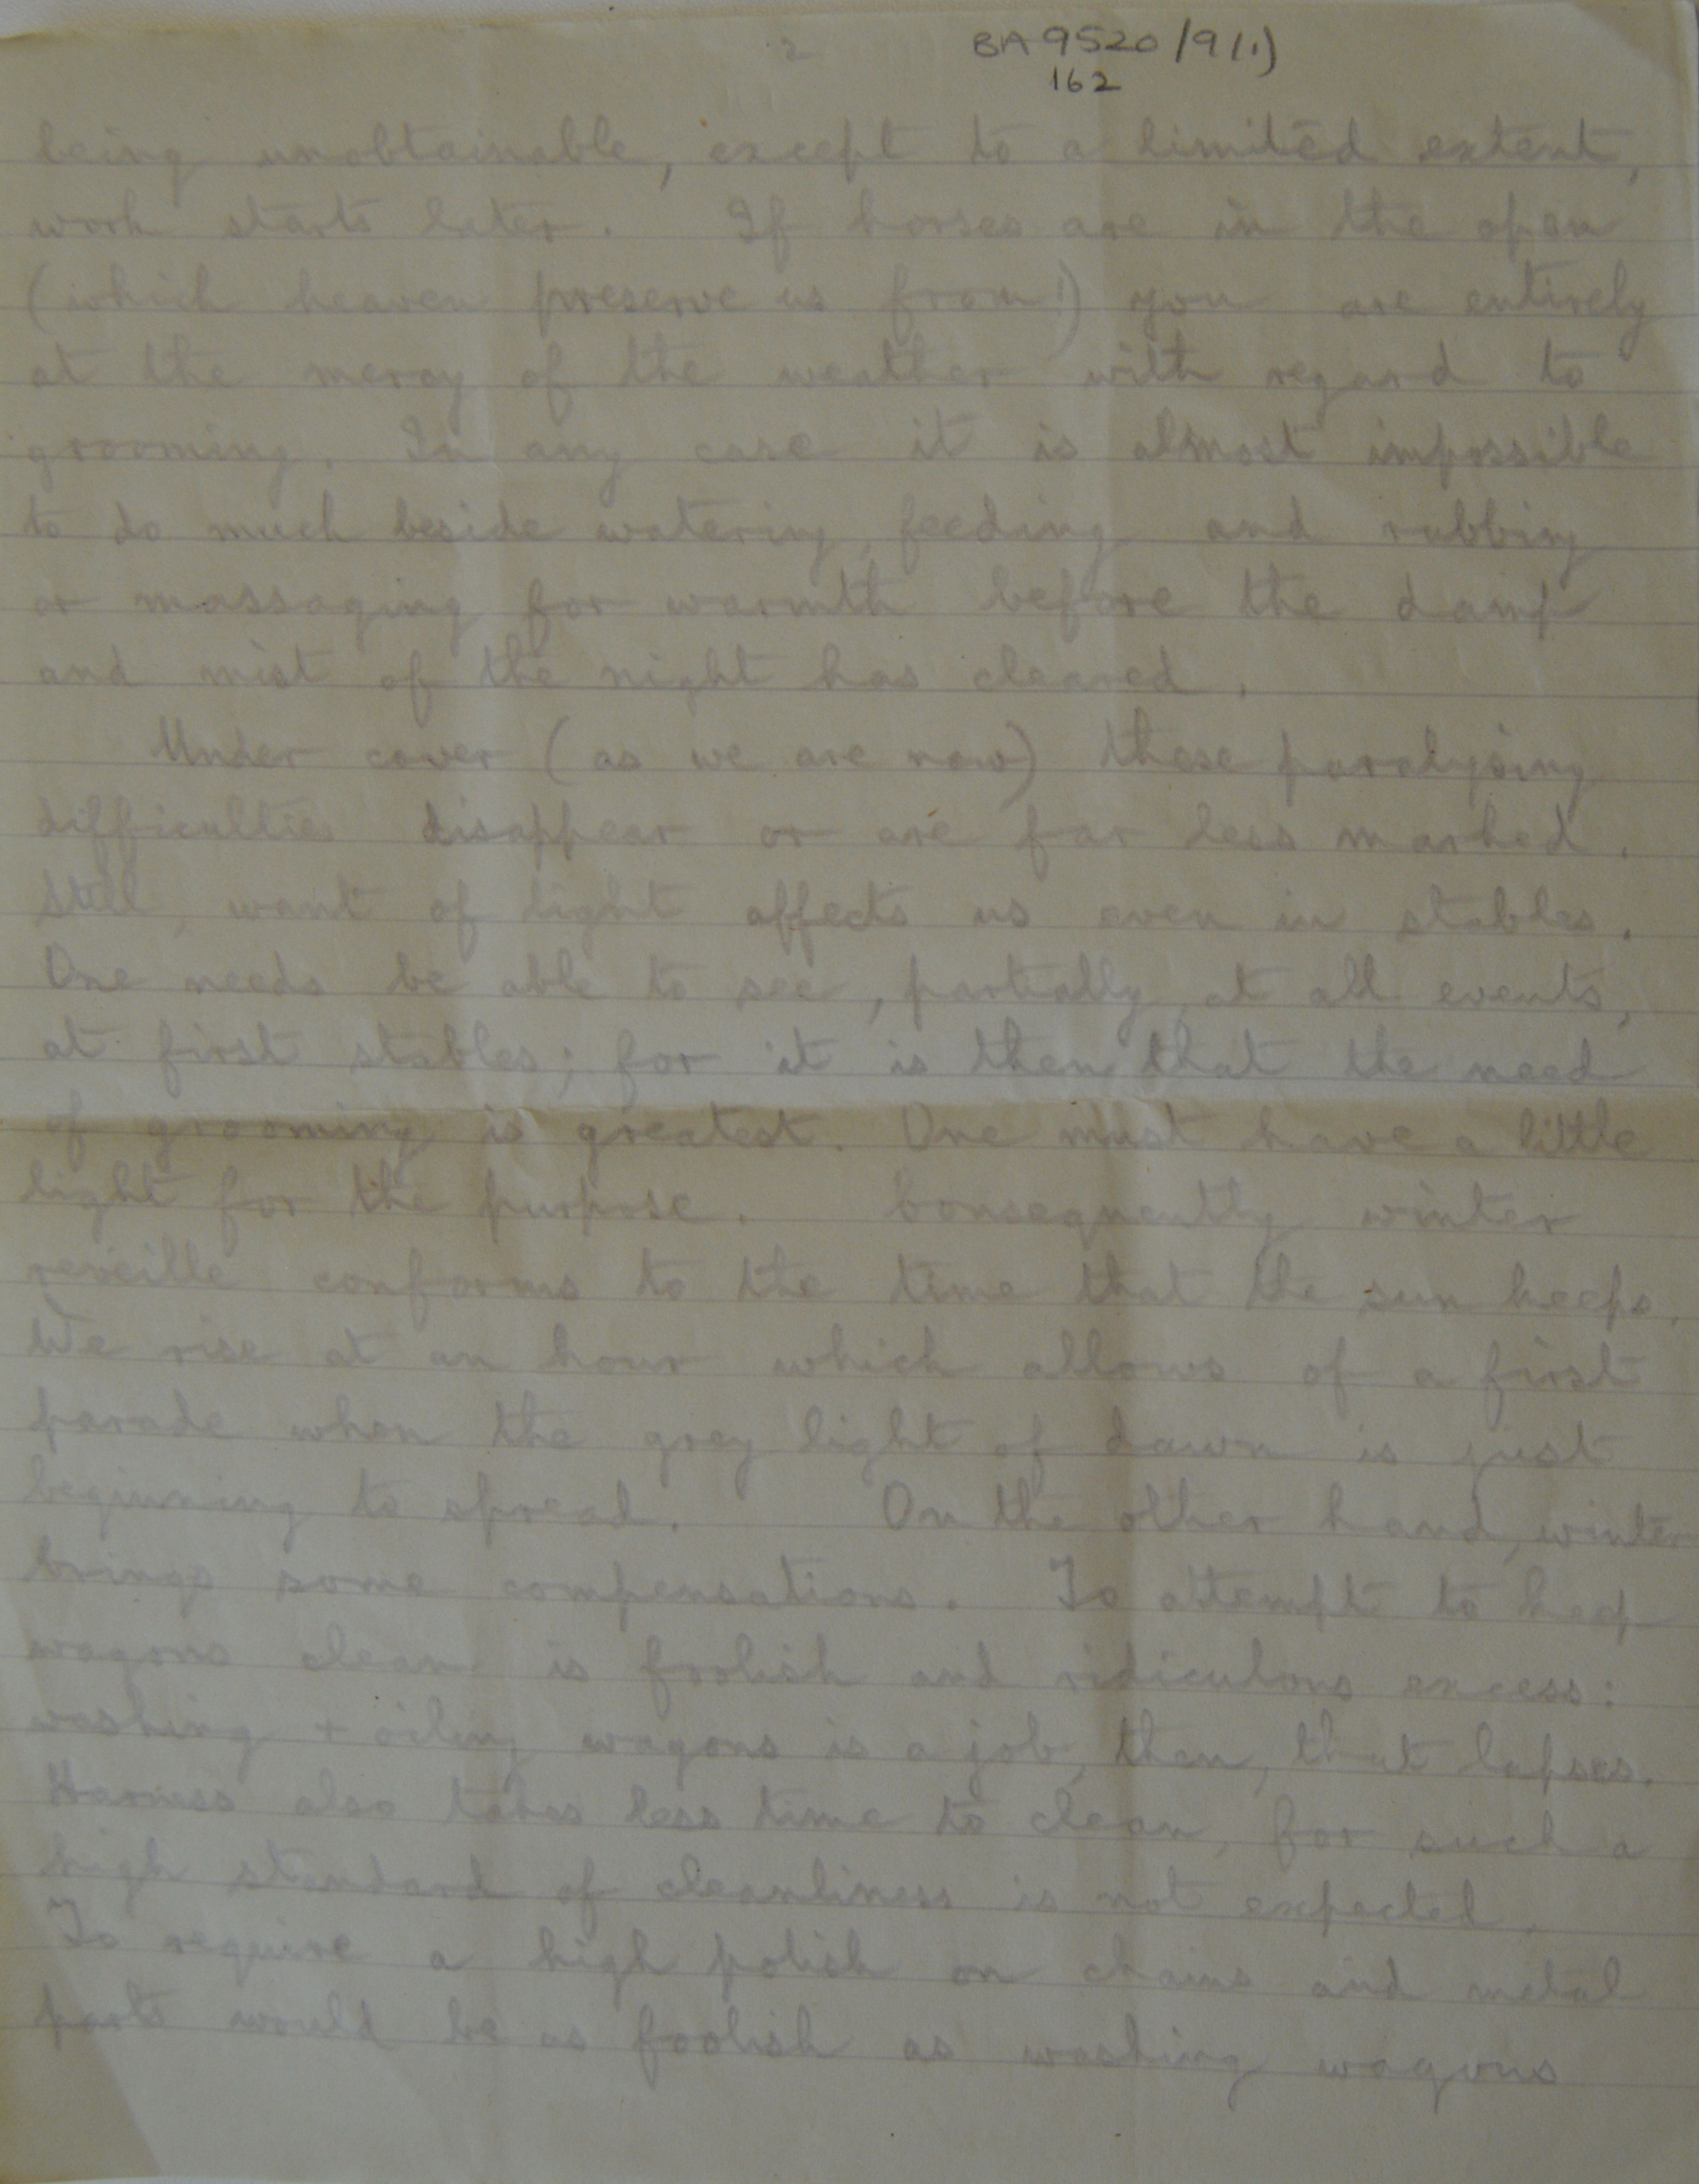 2
BA 9520/9(1)
162
being unobtainable, except to a limited extent,
work starts later. If horses are in the open
(which heaven preserve us from!) you are entirely
at the mercy of the weather with regard to
grooming. In any case it is almost impossible
to do much beside watering, feeding and rubbing
or massaging for warmth before the damp
and mist of the night has cleared.
Under cover (as we are now) these paralysing
difficulties disappear or are far less marked.
Still, want of light affects us even in stables.
One needs be able to see, partially, at all events,
at first stables; for it is then that the need
of grooming is greatest. One must have a little
light for the purpose. Consequently winter
reveille conforms to the time that the sun keeps.
We rise at an hour which allows of a first
parade when the grey light of dawn is just
beginning to spread. On the other hand, winter
brings some compensations. To attempt to keep
wagons clean is foolish and ridiculous excess:
washing + oiling wagons is a job, then, that lapses.
Harness also takes less time to clean, for such a
high standard of cleanliness is not expected.
To require a high polish on chains and metal
parts would be as foolish as washing wagons